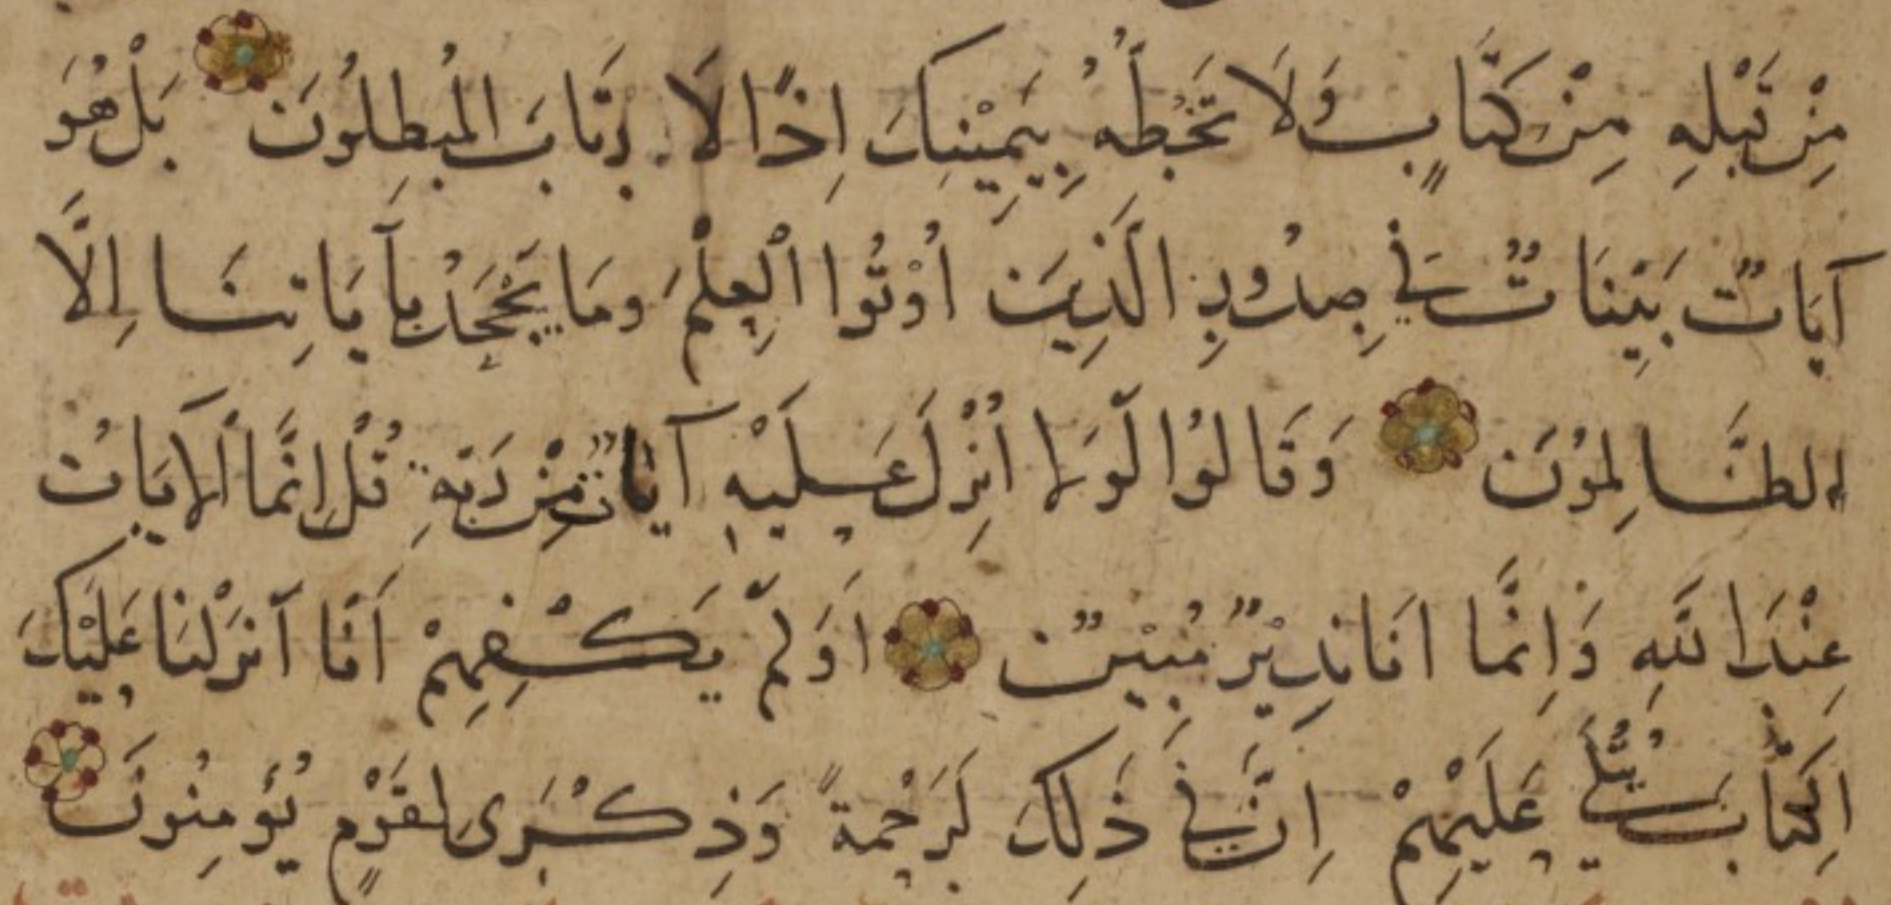 مِنْ قَبْلِهِ مِنْ كِتَابٍ وَلَا تَخُطُّهُ بِيَمِيْنِكَ اِذًا لَا رْتَابَ الْمُبْطِلُونَ بَلْ هُوَ
آيَاتٌ بَيِّنَاتٌ فِي صُدُورِ الَّذِيَنَ اُوْتُوا الْعِلْمَ وَمَا يَجْحَدُ بِآيَاتِنَا اِلَّا
الظَّالِمُوْنَ وَقَالُوُا لَوْلَا اُنْزِلَ عَلَيْهِ آيَاتٌ مِنْ رَبِّهِ قُلْ اِنَّمَا الْآيَاتُ
عِنْدَ اللَّهِ وَاِنَّمَا اَنَا نَذِيْرٌ مُبِيْنٌ اَوَلَمْ يَكْفِهِمْ اَنَّا اَنْزَلْنَا عَلَيْكَ
الْكِتَابَ يُتْلَى عَلَيْهِمْ اِنَّ فِي ذَلِكَ لَرَحْمَةً وَذِكْرَى لِقَوْمٍ يُؤْمِنُونَ